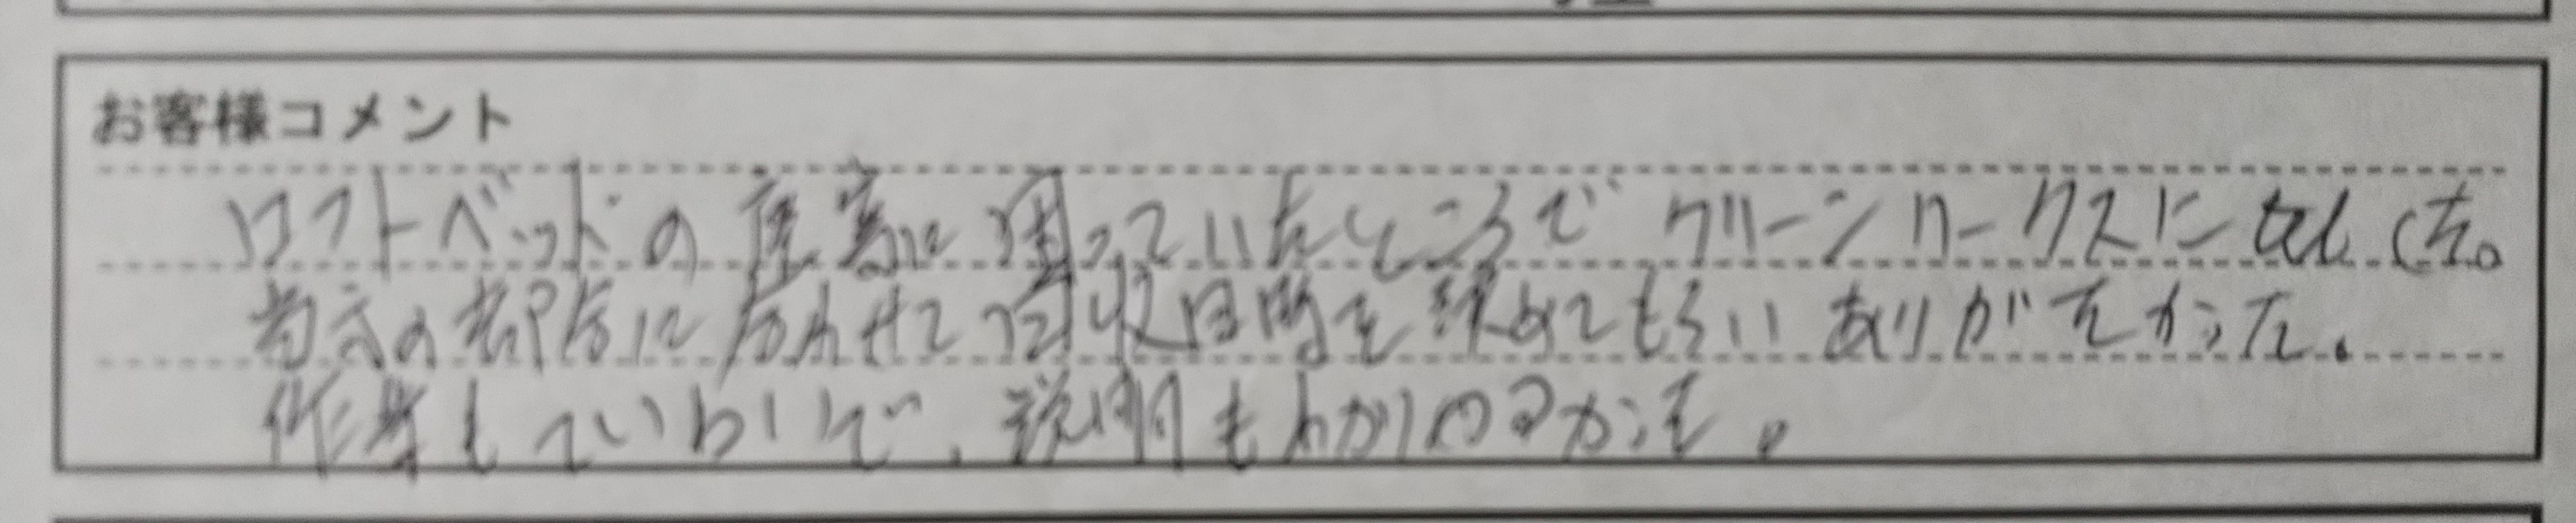 お客様コメント
ロフトベッドの廃棄に困っていたところでクリーンワークスにたのんだ。
当方の都合に合わせて回収日時を決めてもらいありがたかった。
作業もていねいで、説明もわかりやすかった。